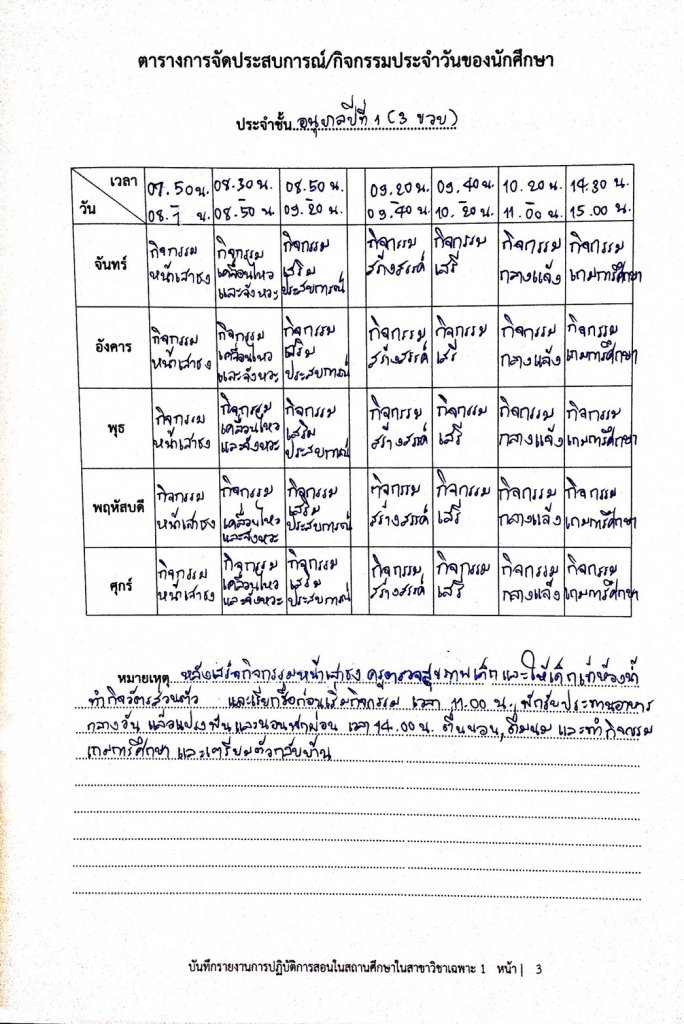 ตารางการจัดประสบการณ์/กิจกรรมประจำวันของนักศึกษา
ประจำชั้น อนุบาลปีที่ 1 (3 ขวบ)
เวลา 07.50 น. 08.30 น. 08.50 น. 09.20 น. 09.40 น. 10.20 น. 14.30 น.
วัน 08. น. 08.50 น. 09.20 น. 09.40 น. 10.20 น. 11.00 น. 15.00 น.
กิจกรรม กิจกรรม กิจกรรม กิจกรรม กิจกรรม กิจกรรม กิจกรรม
จันทร์ หน้าเสาธง เคลื่อนไหว เสริม สร้างสรรค์ เสรี กลางแจ้ง เกมการศึกษา
และจังหวะ ประสบการณ์
กิจกรรม กิจกรรม กิจกรรม กิจกรรม กิจกรรม กิจกรรม กิจกรรม
อังคาร หน้าเสาธง เคลื่อนไหว เสริม สร้างสรรค์ เสรี กลางแจ้ง เกมการศึกษา
และจังหวะ ประสบการณ์
กิจกรรม กิจกรรม กิจกรรม กิจกรรม กิจกรรม กิจกรรม กิจกรรม
พุธ หน้าเสาธง เคลื่อนไหว เสริม สร้างสรรค์ เสรี กลางแจ้ง เกมการศึกษา
และจังหวะ ประสบการณ์
กิจกรรม กิจกรรม กิจกรรม กิจกรรม กิจกรรม กิจกรรม กิจกรรม
พฤหัสบดี หน้าเสาธง เคลื่อนไหว เสริม สร้างสรรค์ เสรี กลางแจ้ง เกมการศึกษา
และจังหวะ ประสบการณ์
กิจกรรม กิจกรรม กิจกรรม กิจกรรม กิจกรรม กิจกรรม กิจกรรม
ศุกร์ หน้าเสาธง เคลื่อนไหว เสริม สร้างสรรค์ เสรี กลางแจ้ง เกมการศึกษา
และจังหวะ ประสบการณ์
หมายเหตุ หลังเสร็จกิจกรรมหน้าเสาธง ครูตรวจสุขภาพเด็ก และให้เด็กเข้าห้องน้ำ
ทำกิจวัตรส่วนตัว และเรียกชื่อก่อนเริ่มกิจกรรม เวลา 11.00 น. พักรับประทานอาหาร
กลางวัน แล้วแปรงฟัน และนอนพักผ่อน เวลา 14.00 น. ตื่นนอน, ดื่มนม และทำกิจกรรม
เกมการศึกษา และเตรียมตัวกลับบ้าน
บันทึกรายงานการปฏิบัติการสอนในสถานศึกษาในสาขาวิชาเฉพาะ 1 หน้า | 3